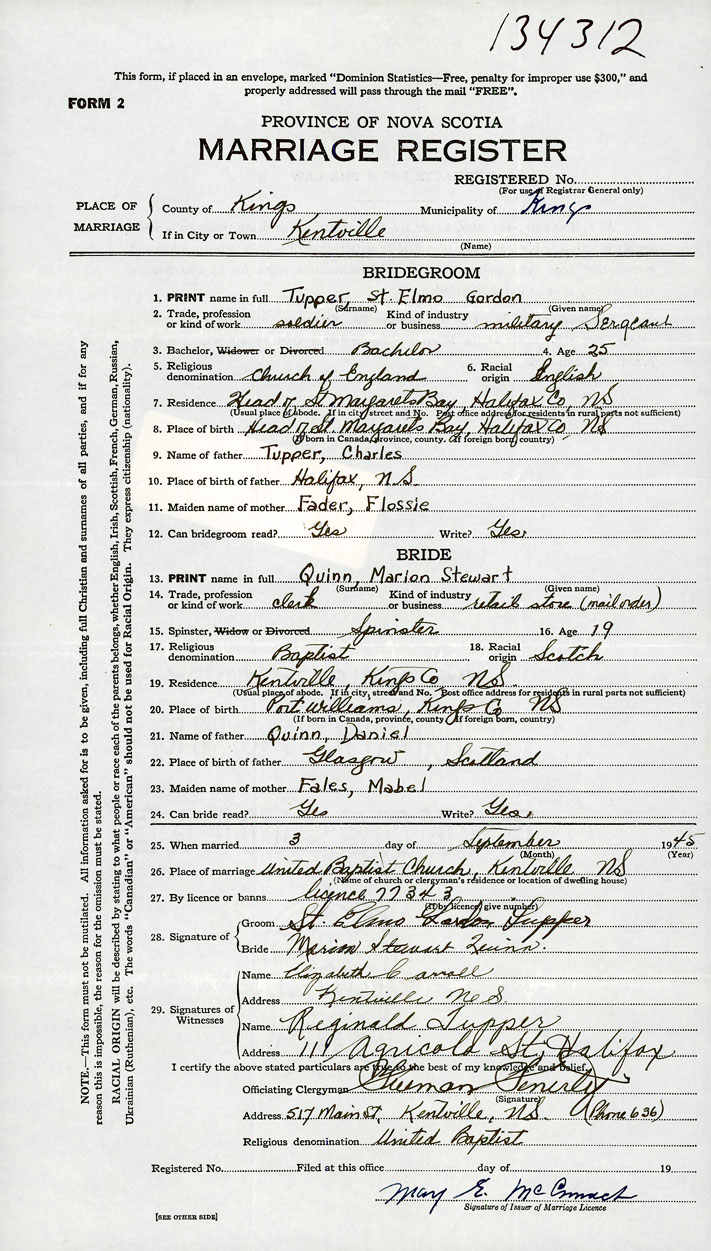 134312
This form, if placed in an envelope, marked "Dominion Statistics—Free, penalty for improper use $300," and
properly addressed will pass through the mail "FREE".
FORM 2
PROVINCE OF NOVA SCOTIA
MARRIAGE REGISTER
REGISTERED No.
(For use of Registrar General only)
PLACE OF MARRIAGE
County of Kings Municipality of Kings
If in City or Town Kentville
(Name)
BRIDEGROOM
1. PRINT name in full Tupper, St. Elmo Gordon
(Surname) (Given name)
2. Trade, profession or kind of work soldier Kind of industry or business military Sergeant
3. Bachelor, Widower or Divorced Bachelor 4. Age 25
5. Religious denomination Church of England 6. Racial origin English
7. Residence Head of St Margarets Bay, Halifax Co, NS
(Usual place of abode. If in city, street and No. Post office address for residents in rural parts not sufficient)
8. Place of birth Head of St. Margarets Bay, Halifax Co NS
(If born in Canada, province, county. If foreign born, country)
9. Name of father Tupper, Charles
10. Place of birth of father Halifax, N.S
11. Maiden name of mother Fader, Flossie
12. Can bridegroom read? Yes Write? Yes
BRIDE
13. PRINT name in full Quinn, Marion Stewart
(Surname) (Given name)
14. Trade, profession or kind of work clerk Kind of industry or business retail store (mail order)
15. Spinster, Widow or Divorced Spinster 16. Age 19
17. Religious denomination Baptist 18. Racial origin Scotch
19. Residence Kentville, Kings Co NS
(Usual place of abode. If in city, street and No. Post office address for residents in rural parts not sufficient)
20. Place of birth Port Williams, Kings Co NS
(If born in Canada, province, county. If foreign born, country)
21. Name of father Quinn, Daniel
22. Place of birth of father Glasgow, Scotland
23. Maiden name of mother Fales, Mabel
24. Can bride read? Yes Write? Yes
25. When married 3 day of September 1945
(Month) (Year)
26. Place of marriage United Baptist Church, Kentville NS
(Name of church or clergyman's residence or location of dwelling house)
27. By licence or banns licence 77343
(If by licence, give number)
28. Signature of
Groom St. Elmo Gordon Tupper
Bride Marion Stewart Quinn.
29. Signatures of Witnesses
Name Elizabeth Carroll
Address Kentville N.S.
Name Reginald Tupper
Address 111 Agricola St, Halifax
I certify the above stated particulars are true to the best of my knowledge and belief.
Officiating Clergyman
(Signature)
Address 517 Main St, Kentville, NS. (Phone 636)
Religious denomination United Baptist
Registered No. Filed at this office day of 19
Mary E. McCormack
Signature of Issuer of Marriage Licence
[SEE OTHER SIDE]
NOTE.—This form must not be mutilated. All information asked for is to be given, including full Christian and surnames of all parties, and if for any
reason this is impossible, the reason for the omission must be stated.
RACIAL ORIGIN will be described by stating to what people or race each of the parents belongs, whether English, Irish, Scottish, French, German, Russian,
Ukrainian (Ruthenian), etc. The words "Canadian" or "American" should not be used for Racial Origin. They express citizenship (nationality).